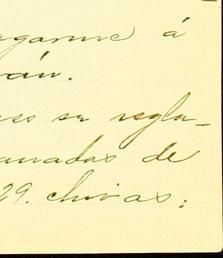 garme á
rán.
es su regla-
anadas de
29. chivas: